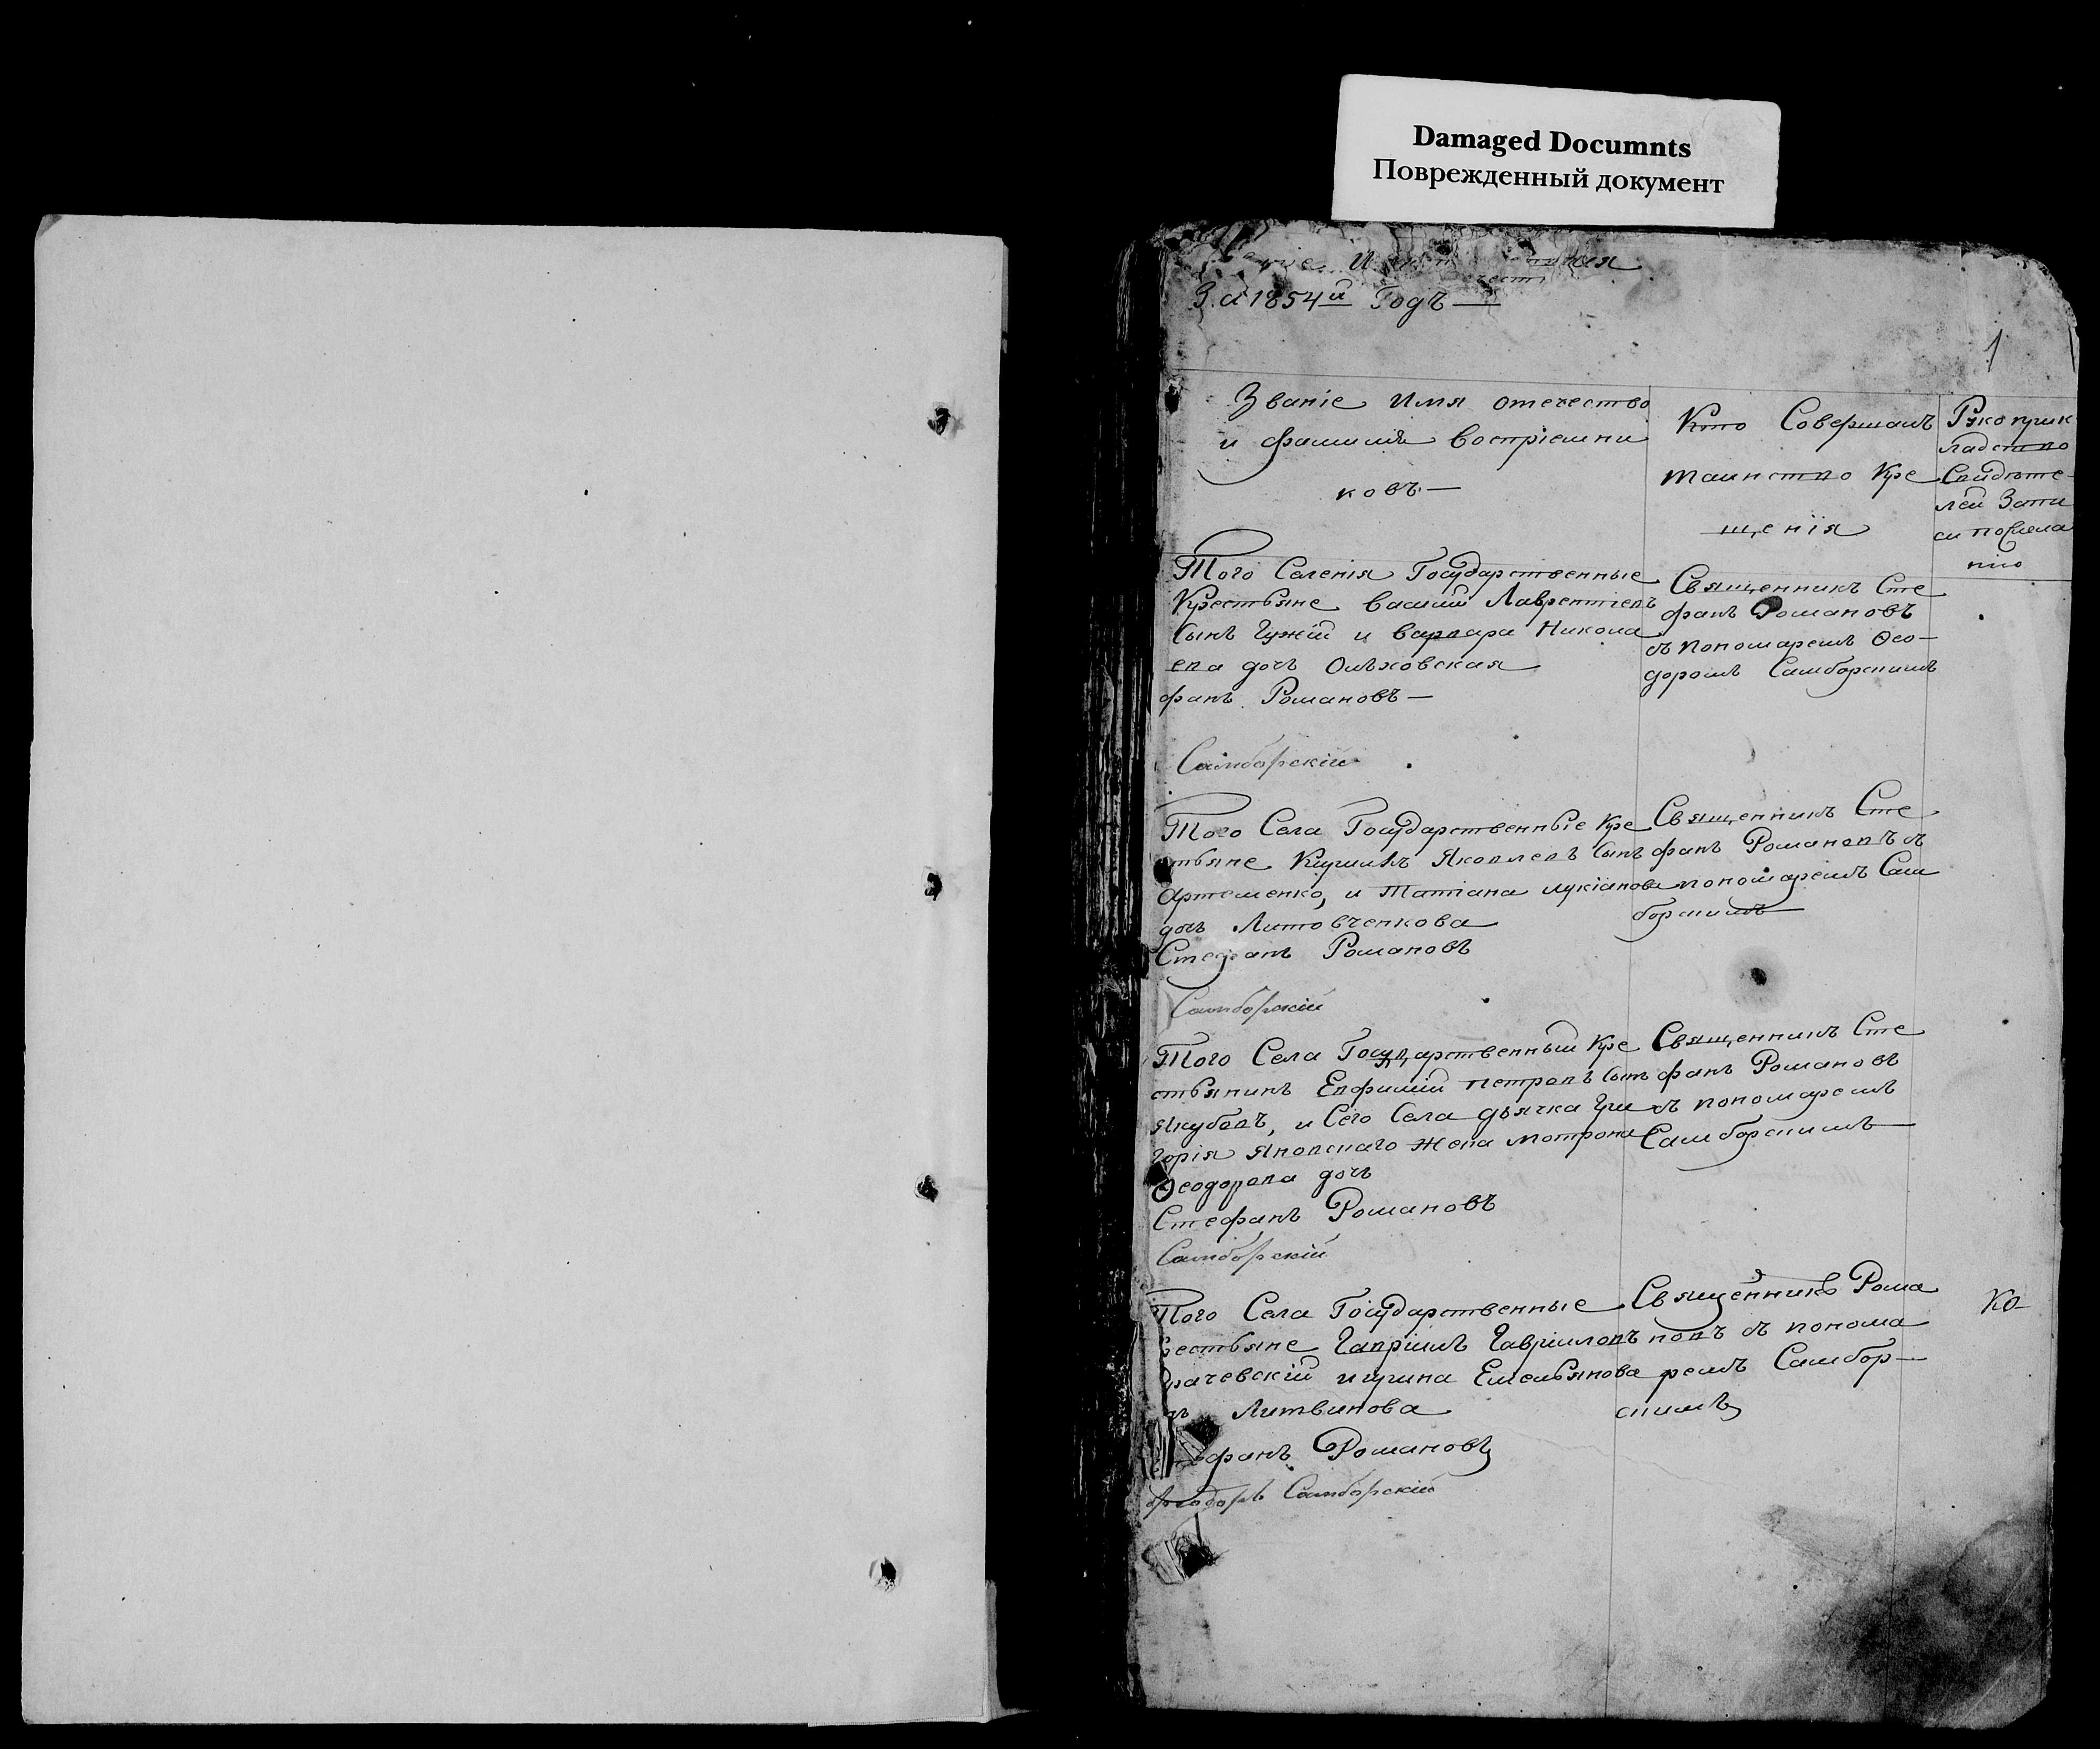 Damaged Documnts
Поврежденный документ
За 1854й Годъ —
1
Званіе Имя отечество
и фамилія воспріемни
ковъ —
Кто Совершалъ
таинство Кре
щенія
Рукоприк
ладство
Свидѣте-
лей Запи
си по Жела
нію
Того Селенія Государственные
Крестьяне Василій Лаврентіевъ
Сынъ Чужій и Варвара Никола
ева дочь Ольховская
фанъ Романовъ —
Самборскій
Священникъ Сте
фанъ Романовъ
съ пономаремъ Ѳео-
доромъ Самборскимъ
Того Села Государственные Кре
стьяне Кириллъ Яковлевъ Сынъ
Артеменко, и Татіана Лукіанова
дочь Литовченкова
Стефанъ Романовъ
Самборскій
Священникъ Сте
фанъ Романовъ съ
пономаремъ Сам
борскимъ
Того Села Государственный Кре
стьянинъ Евфимій Петровъ Сынъ
Якубовъ, и Сего Села дьячка Гри
горія Яновскаго Жена Мотрона
Ѳеодорова дочь
Стефанъ Романовъ
Самборскій
Священникъ Сте
фанъ Романовъ
съ пономаремъ
Самборскимъ
Того Села Государственные
рестьяне Гавріилъ Гавріиловъ
рачевскій Ирина Емельянова
Литвинова
фанъ Романовъ
Ѳеодоръ Самборскій
Священникъ Рома
новъ съ понома
ремъ Самбор-
скимъ
ко-